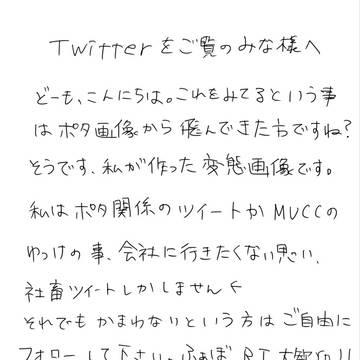 Twitterをご覧のみな様へ
どーも、こんにちは。これをみてるという事
はポタ画像から飛んできた方ですね?
そうです、私が作った変態画像です。
私はポタ関係のツイートかMUCCの
ゆっけの事、会社に行きたくない思い、
社畜ツイートしかしません<
それでもかまわないという方はご自由に
フォローして下さい。ふぁぼRT大歓迎!!